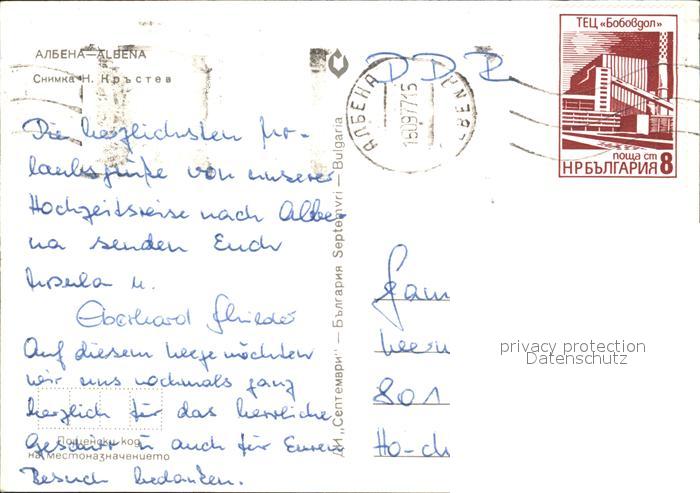 АЛБЕНА—ALBENA
Снимка Н. Кръстев
Die herzlichsten Ur-
laubsgrüße von unserer
Hochzeitsreise nach Albe-
na senden Euch
Ursula u.
Eberhard
Auf diesem Wege möchten
wir uns nochmals ganz
herzlich für das herrliche
Geschirr u. auch für Euren
Besuch bedanken.
Пощенски код
на местоназначението
ДИ „Септември" — България Septemvri — Bulgaria
DDR
АЛБЕНА
18.09.77.15
ТЕЦ „Бобовдол"
поща ст
НР БЪЛГАРИЯ 8
Fam
801
Ho-ch
privacy protection
Datenschutz